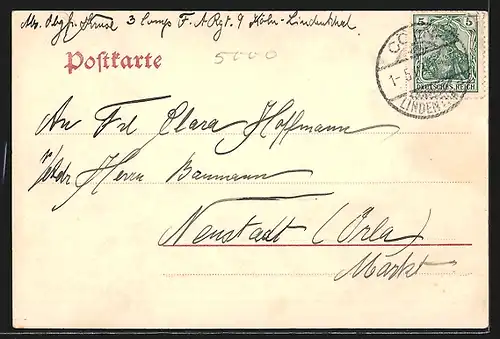 Abs. Obgfr. Kruse 3 Comp F. A Rgt. 9 Köln-Lindenthal
Postkarte
5000
5 5
DEUTSCHES REICH
CÖLN
1-5
LINDENTHAL
An Frl Clara Hoffmann
Herrn Baumann
Neustadt (Orla)
Markt